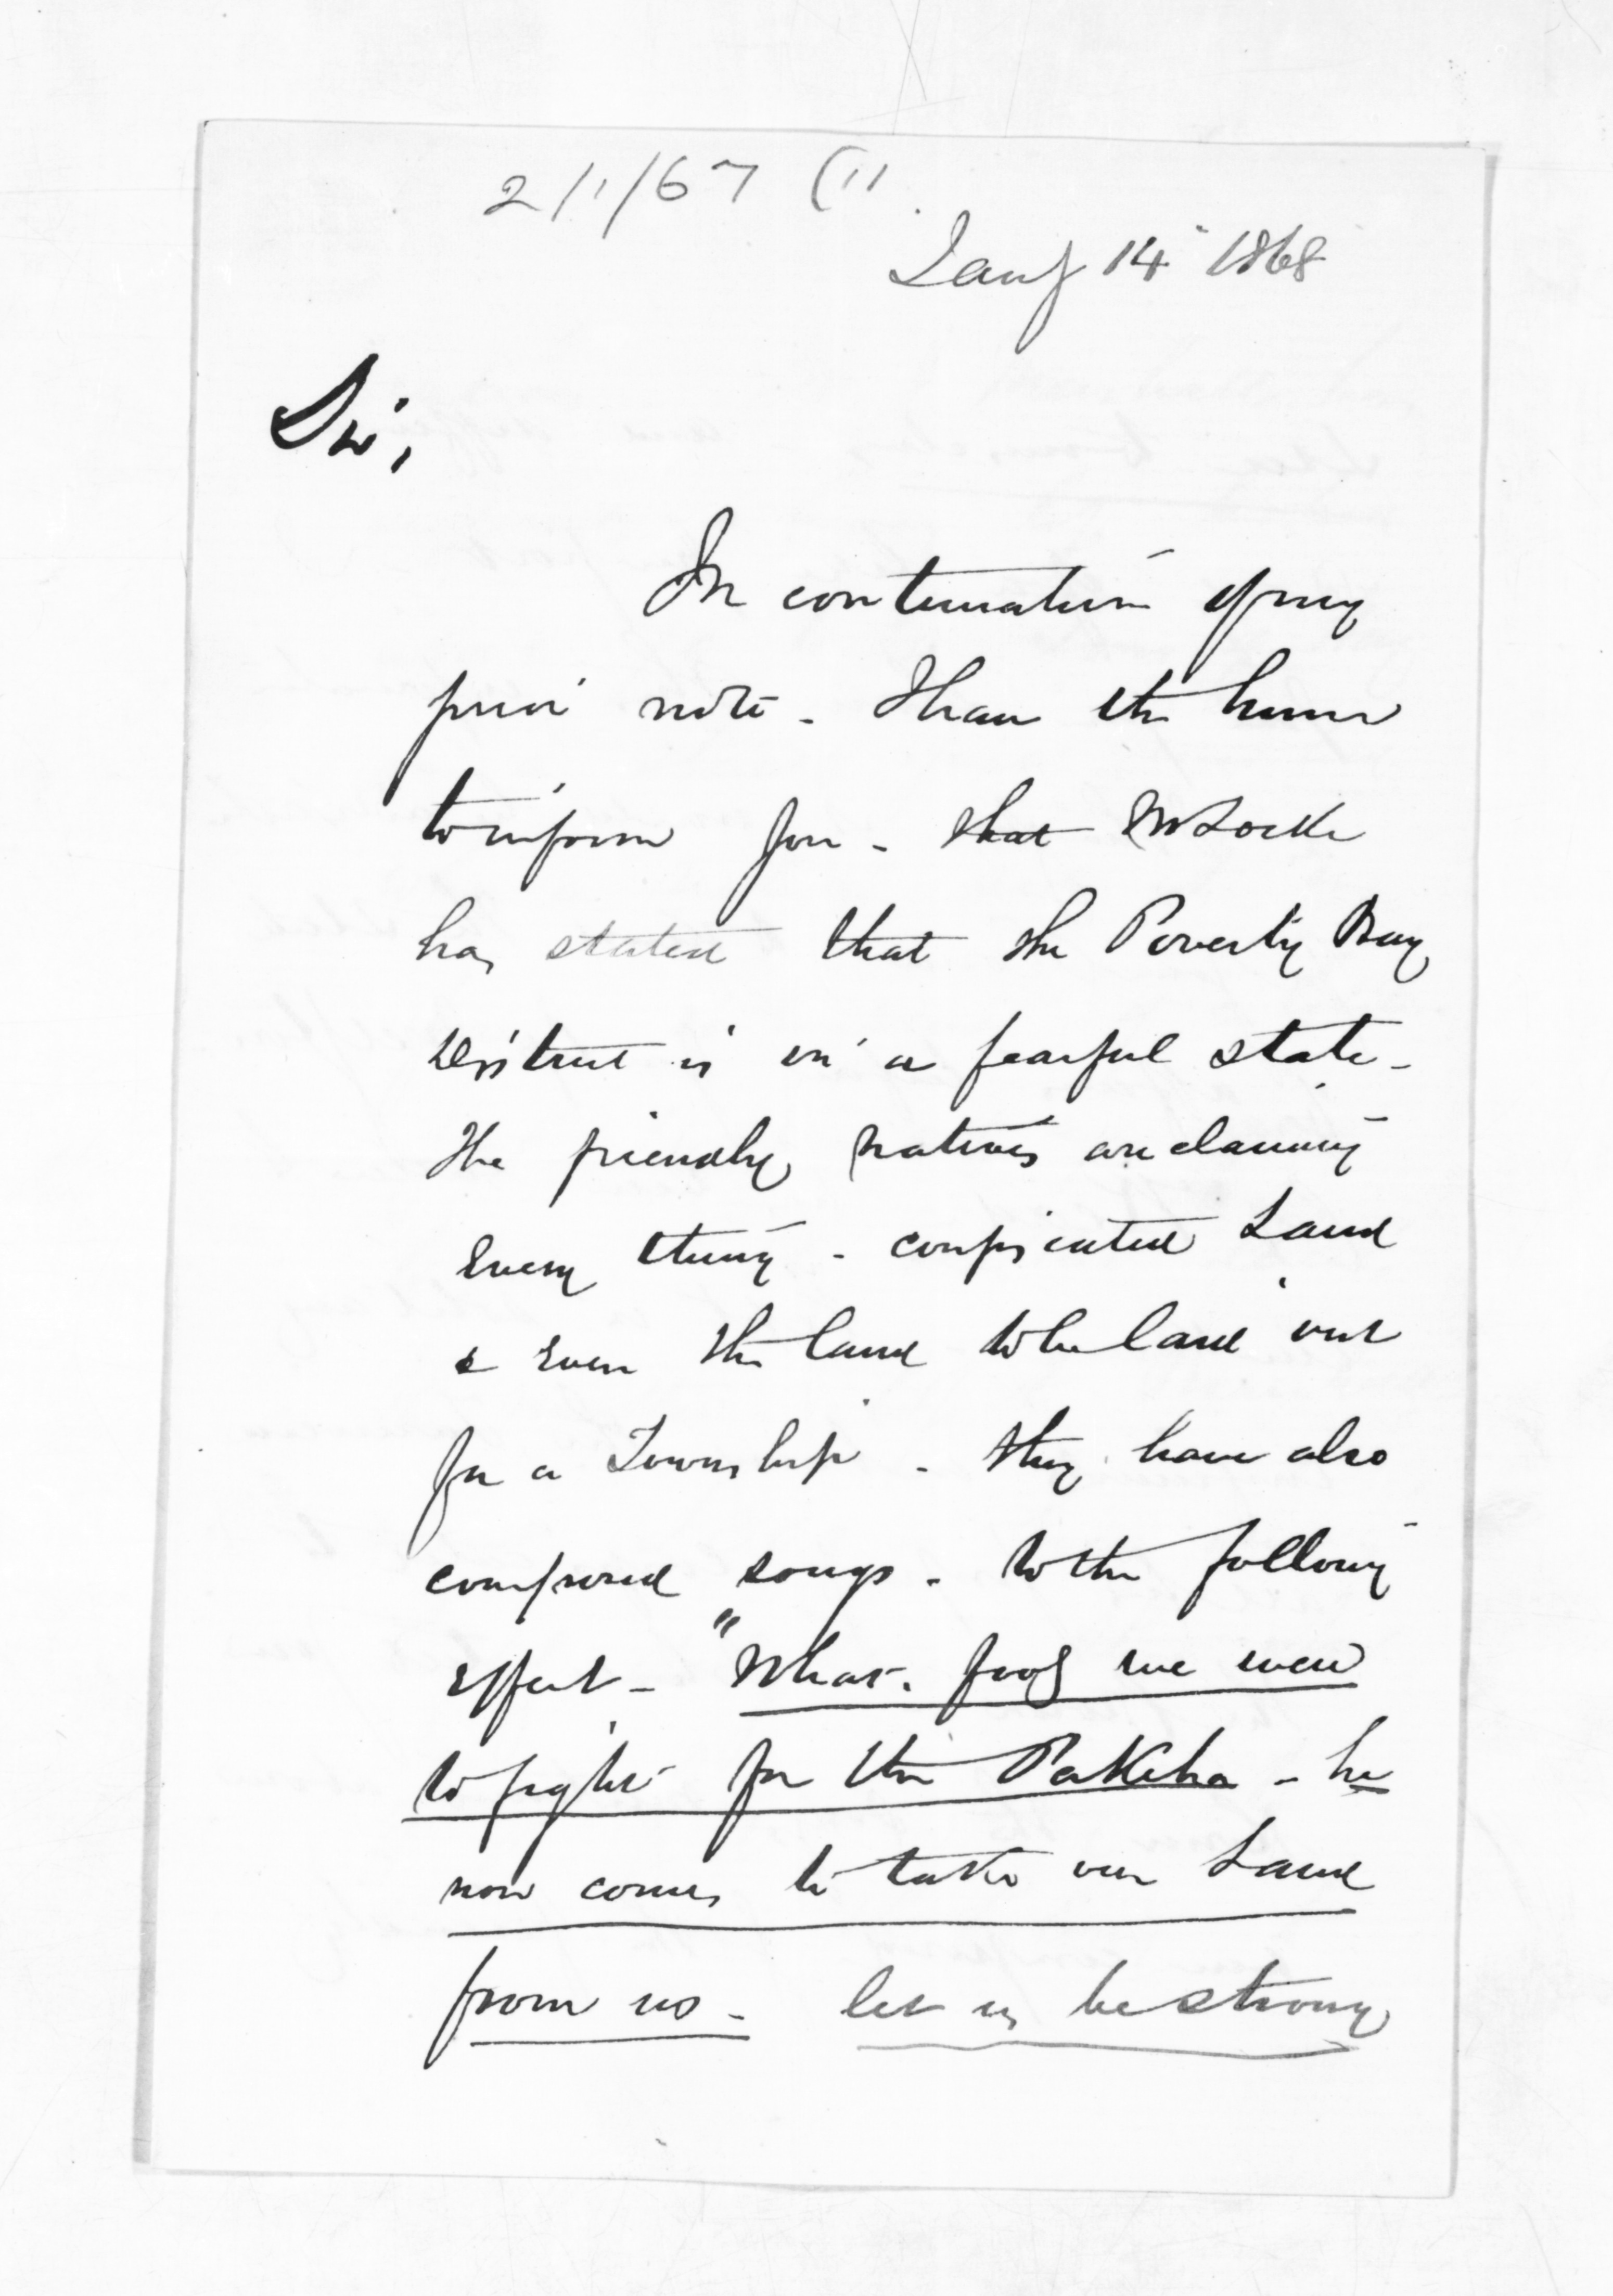 2/1/67 (11
Jany 14 1868
Sir,
In continuation of my
prior note - I have the honor
to inform you - that Mr Locke
has stated that the Poverty Bay
District is in a fearful state -
The friendly natives are claiming
every thing - confiscated Land
& even the land to be laid out
for a Township - they have also
composed songs - to the following
effect - "What fools we were
to fight for the Pakeha - he
now comes to take our Land
from us - let us be strong